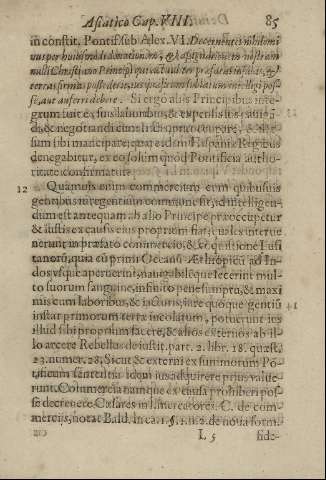 Asiatico Cap. VIII. 85
in constit. Pontif. sub Alex. VI. Decernentes nihilomi
nus per huiusmodi donationem, & nostram
nulli Christiano Principi qui præfatas insulas, &
terras firmas possederit, ius quæsitum sublatum intelligi pos-
se, aut auferri debere. Si ergo aliis Principibus inte-
grum fuit ex suis laboribus, &
negotiandi
sum sibi mancipare, quare idem Hispaniæ Regibus
denegabitur, ex eo solùm quod Pontificia autho-
ritate confirmatur.
12 Quamuis enim commercium cum quibusuis
gentibus iure gentium commune sit, id intelligen-
dum est antequam ab alio Principe præoccupetur
& iustis ex causis eius proprium fiat, qualex interue
nerunt in præfato commercio, & quæstione Lusi
tanorũ, quia cũ primi Oceani Æthiopica ad In-
dos vsque aperuerint, nauigabileque fecerint mul-
to suorum sanguine, infinito pene sumptu, & maxi
mis cum laboribus, & iacturis, iure quoque gentiũ
instar primorum terra incolatum, potuerunt ius
illud sibi proprium facere, & alios externos ab il-
lo arcere Rebellus de iustit. part. 2. libr. 18. quæst.
23. numer. 28, Sicut & externi ex summorum Po-
tificum sententia idem ius adquirere prius value-
runt. Commercia namque ex causa prohiberi pos-
se decreuere Cæsares in l. mercatores. C. de com-
mercijs, notat Bald. in ca. 1. §. 1. n. 2. de noua form.
L 5 fide-